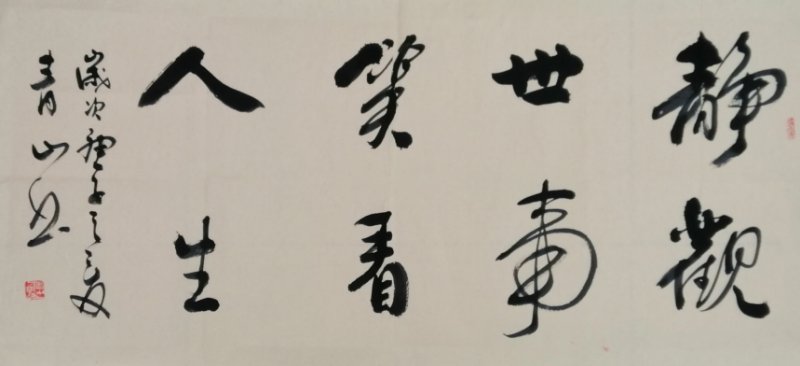 靜觀
世事
笑看
人生
歲次庚子之夏
青山書